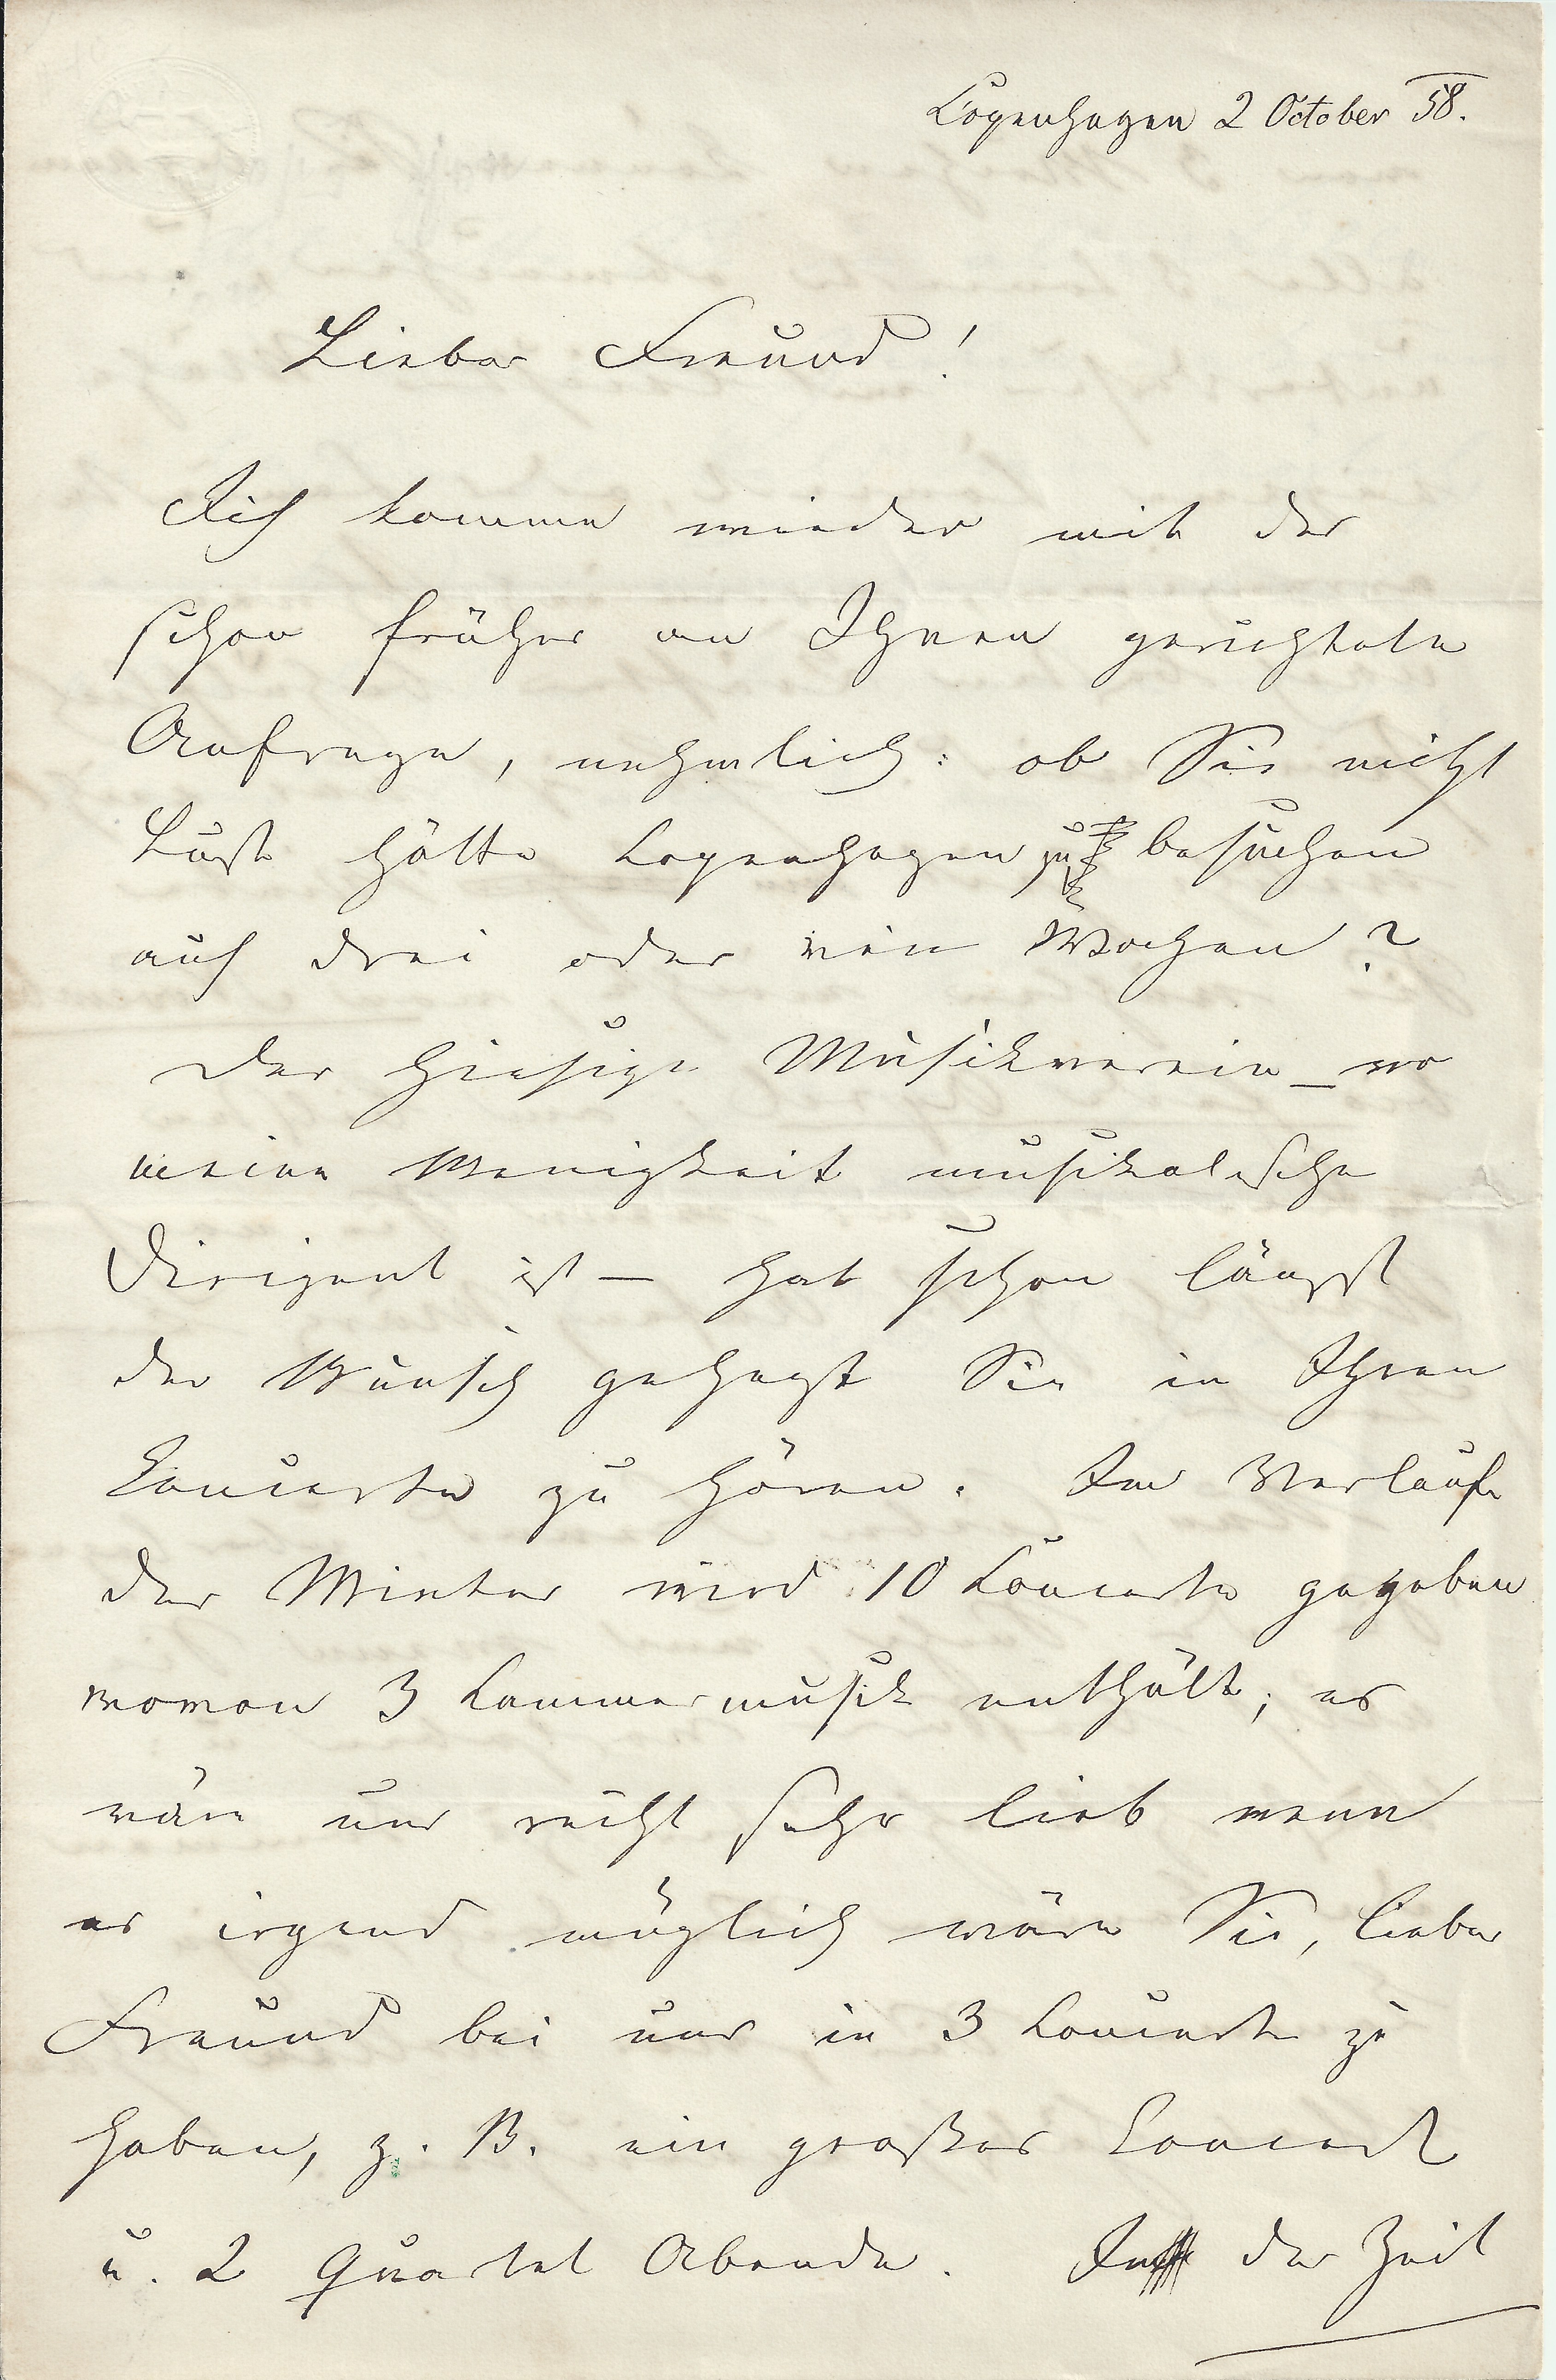 Kopenhagen 2 October 58.
Lieber Freund!
Ich komme wieder mit der
schon früher an Ihnen gerichtete
Anfrage, nehmlich: ob Sie nicht
Lust hätte Kopenhagen zu besuchen
auf drei oder vier Wochen?
Der hiesige Musikverein – wo
meine Wenigkeit musikalische
Dirigent ist – hat schon längst
der Wunsch gehegt Sie in Ihren
Concerten zu hören. Im Verlaufe
der Winter wird 10 Concerte gegeben
wovon 3 Kammermusik enthält; es
wäre uns recht sehr lieb wenn
es irgend möglich wäre Sie, lieber
Freund bei uns in 3 Concerte zu
haben, z. B. ein großes Concert
u. 2 Quartet Abende. In der Zeit